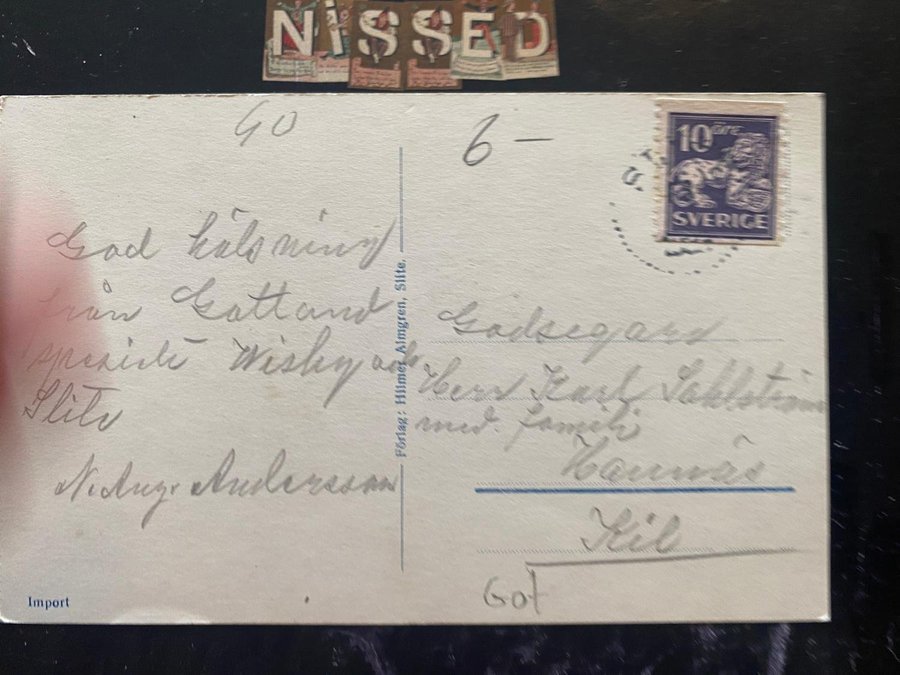 NiSSED
40
6 —
10 öre
SVERIGE
God hälsning
från Gottland
Wisby och
Slite
N. Aug. Andersson
Förlag: Hilmer Almgren, Slite.
Herr Karl Sahlström
med. familj
Kil
Got
Import